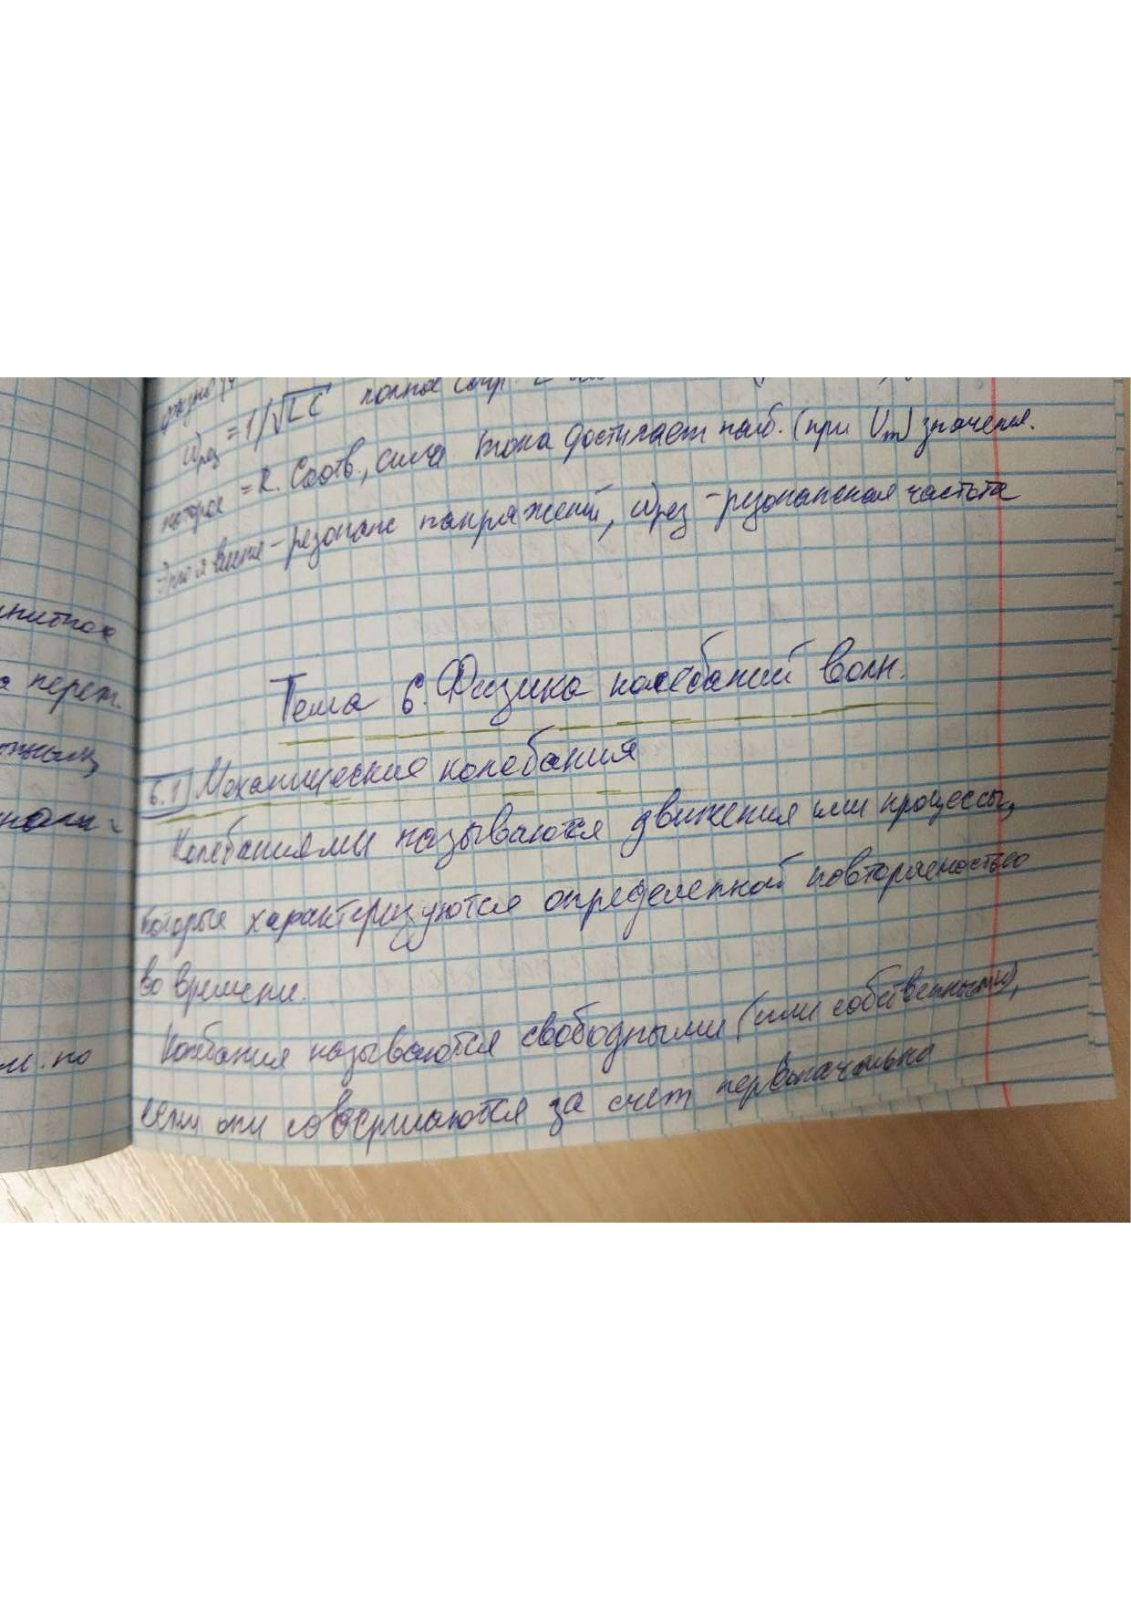 ω рез = 1/√LC полное сопр.
которое = R. Соотв., сила тока достигает наиб. (при Um) значения.
Это явление - резонанс напряжений, ωрез - резонансная частота
перем.
м. по
Тема 6. Физика колебаний волн.
6.1) Механические колебания
Колебаниями называются движения или процессы,
которые характеризуются определенной повторяемостью
во времени.
Колебания называются свободными (или собственными),
если они совершаются за счет первоначально